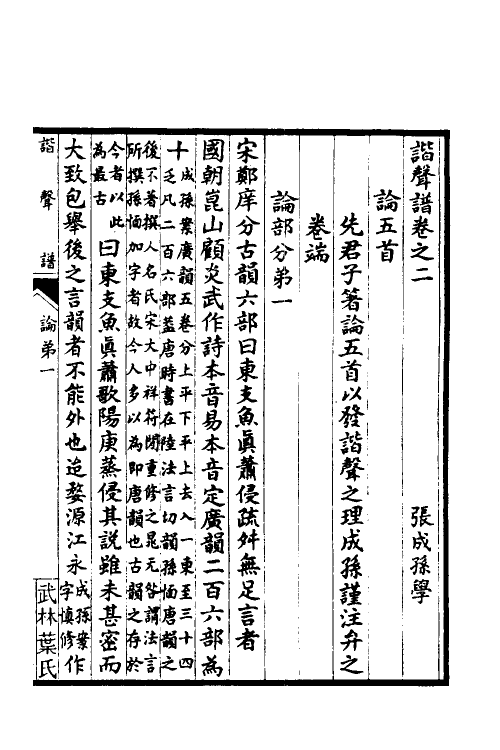 諧聲譜卷之二　張成孫學
論五首
先君子箸論五首以發諧聲之理成孫謹注弁之
卷端
論部分第一
宋鄭庠分古韻六部曰東支魚眞蕭侵疏舛無足言者
國朝崑山顧炎武作詩本音易本音定廣韻二百六部為
十成孫案廣韻五卷分上平下平上去入一東至三十四
乏凡二百六部蓋唐時書在陸法言切韻孫愐唐韻之
後不著撰人名氏宋大中祥符閒重修之晁元咎謂法言
所撰孫愐加字者故今人多以為即唐韻也古韻之存於
今者以此
為最古
曰東支魚眞蕭歌陽庚蒸侵其說雖未甚密而
大致包舉後之言韻者不能外也迨婺源江永成孫案作
字慎修
諧聲譜
論第一
武林葉氏